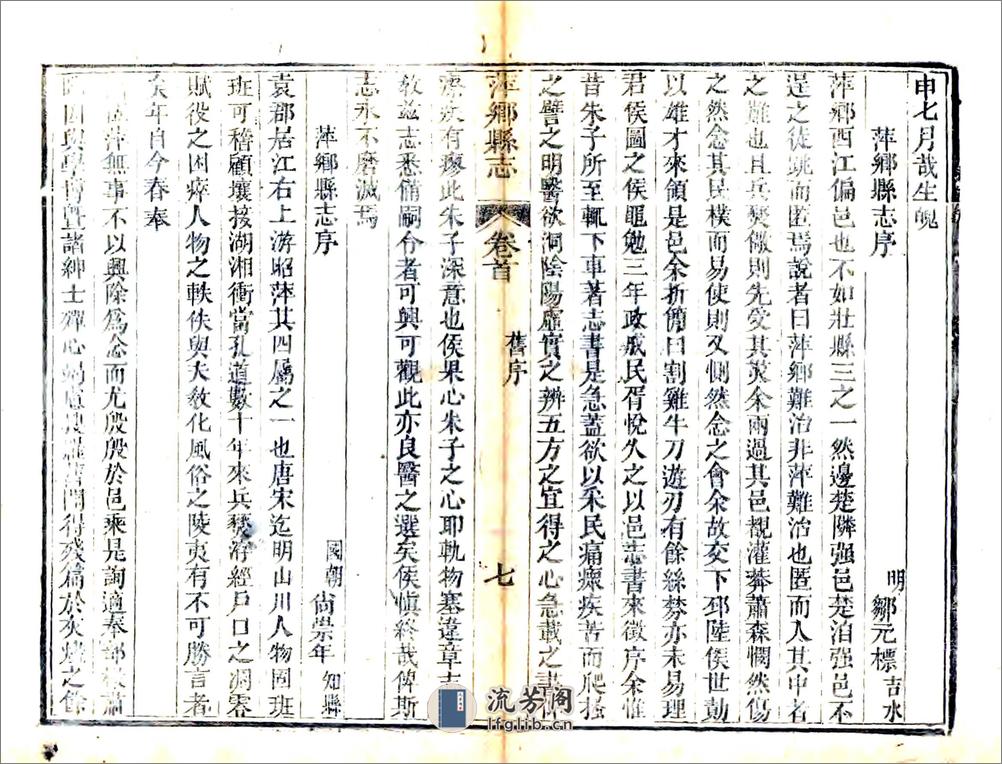 申七月哉生魄
萍鄉縣志序
明鄒元標吉水
萍鄉西江偏邑也不如壯縣三之一然邊楚隣强邑楚泊强邑不
逞之徒跳而匿焉說者曰萍鄉難治非萍難治也匿而入其中者
之難也且兵燹儆則先受其災余兩過其邑覩灌莽蕭森憫然傷
之然念其民樸而易使則又惻然念之會余故交下邳陸侯世勣
以雄才來領是邑余折簡曰割雞牛刀遊刃有餘絲棼亦未易理
君侯圖之侯黽勉三年政成民胥悅久之以邑志書來徵序余惟
昔朱子所至輒下車著志書是急蓋欲以釆民痛瘝疾苦而爬搔
之譬之明醫欲洞陰陽虛實之辨五方之宜得之心急載之書
萍鄉縣志
卷首
舊序
七
有瘳此朱子深意也侯果心朱子之心耶軌物塞違章志
敎玆志悉備嗣合者可興可觀此亦良醫之選矣侯慎終哉俾斯
志永不磨滅焉
萍鄉縣志序
國朝尙崇年知縣
袁郡居江右上游昭萍其四屬之一也唐宋迄明山川人物固班
班可稽顧壤接湖湘衝當孔道數十年來兵燹洊經戶口之凋零
賦役之困瘁人物之軼佚與夫敎化風俗之陵夷有不可勝言者
余年自今春奉
萍無事不以興除爲念而尤殷殷於邑乘是詢適奉部
因與學博曁諸紳士殫心得殘篇於灰燼之餘
流芳阁
lfglib.cn